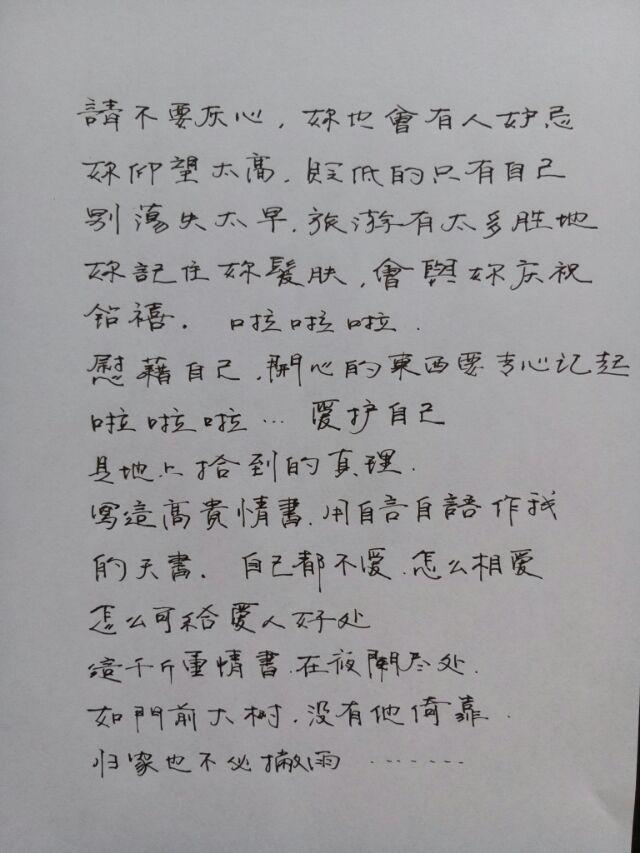 請不要灰心，妳也會有人妒忌
妳仰望太高，貶低的只有自己
別蕩失太早，旅游有太多胜地
妳記住妳髮肤，會與妳庆祝
鉆禧。 啦啦啦．
慰藉自己，開心的東西要专心记起
啦啦啦… 愛护自己
是地上拾到的真理．
寫這高貴情書，用自言自語作我
的天書． 自己都不愛，怎么相爱
怎么可給愛人好处
這千斤重情書，在夜闌尽处．
如門前大树，没有他倚靠．
归家也不必撇雨 ……